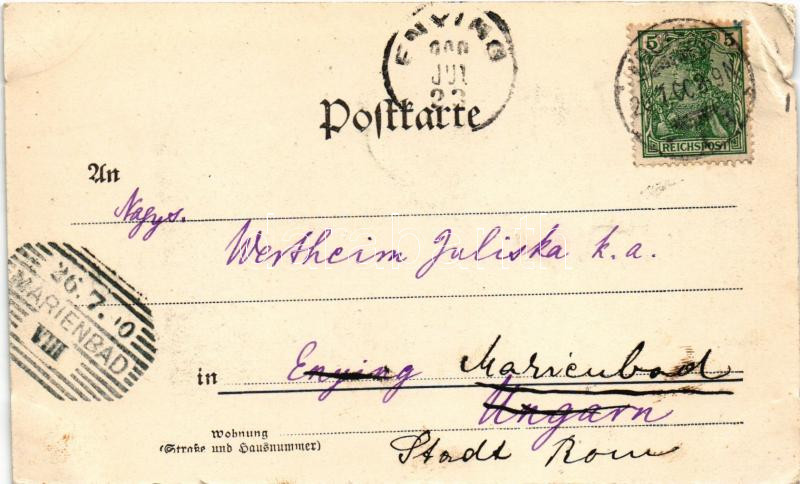 ENYING
900
JUL
23
5 5
REICHSPOST
Postkarte
An
Nagys.
Wertheim Juliska k.a.
26.7.00
MARIENBAD
VIII
in Enying Marienbad
Ungarn
Wohnung
(Straße und Hausnummer)
Stadt Rom